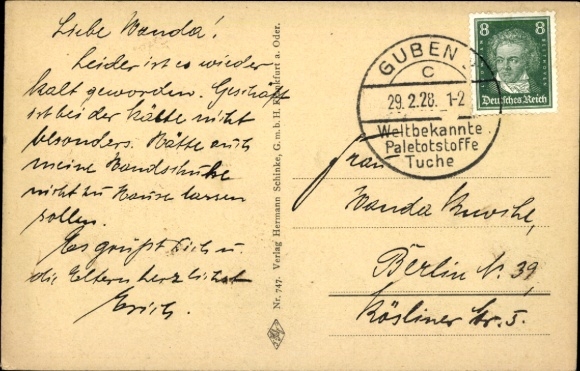 Liebe Wanda!
Leider ist es wieder
kalt geworden. Geschäft
ist bei der Kälte nicht
besonders. Hätte auch
meine Handschuhe
nicht zu Hause lassen
sollen.
Es grüßt Dich u.
die Eltern herzlichst
Erich.
Nr. 747. Verlag Hermann Schinke, G. m. b. H. Frankfurt a. Oder.
GUBEN
C
29.2.28. 1-2
Weltbekannte
Paletotstoffe
Tuche
8 8
Deutsches Reich
Frau
Wanda
Berlin N. 39,
Kösliner Str. 5.